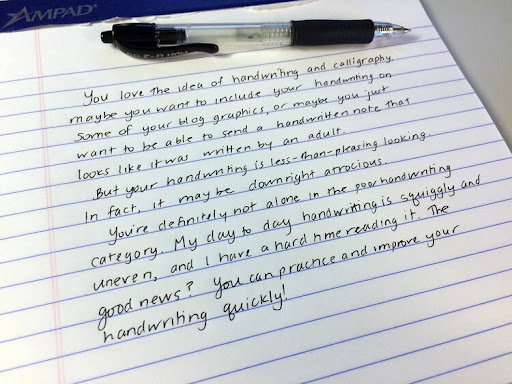 AMPAD®
You love the idea of handwriting and calligraphy.
maybe you want to include your handwriting on
some of your blog graphics, or maybe you just
want to be able to send a handwritten note that
looks like it was written by an adult.
But your handwriting is less-than-pleasing looking.
In fact, it may be downright atrocious.
You're definitely not alone in the poor handwriting
category. My day to day handwriting is squiggly and
uneven, and I have a hard time reading it. The
good news? You can practice and improve your
handwriting quickly!